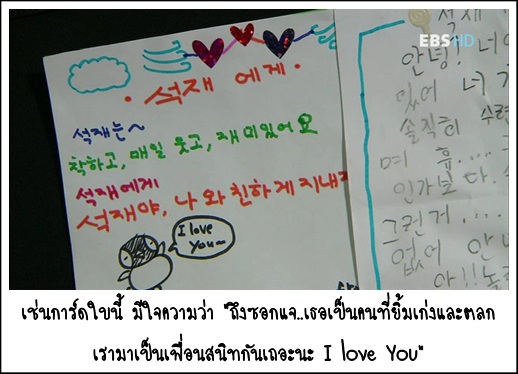 EBS HD
· 석재 에게 ·
석재는~
착하고, 매일 웃고, 재미있어요
석재에게
석재야, 나와 친하게 지내
I love
you~
석재
안녕! 너
있어 너
솔직히 수련
며 휴....
인가보다.
그런거....
없어 안
아!!
เช่นการ์ดใบนี้ มีใจความว่า "ถึงซอกแจ..เธอเป็นคนที่ยิ้มเก่งและตลก
เรามาเป็นเพื่อนสนิทกันเถอะนะ I love You"